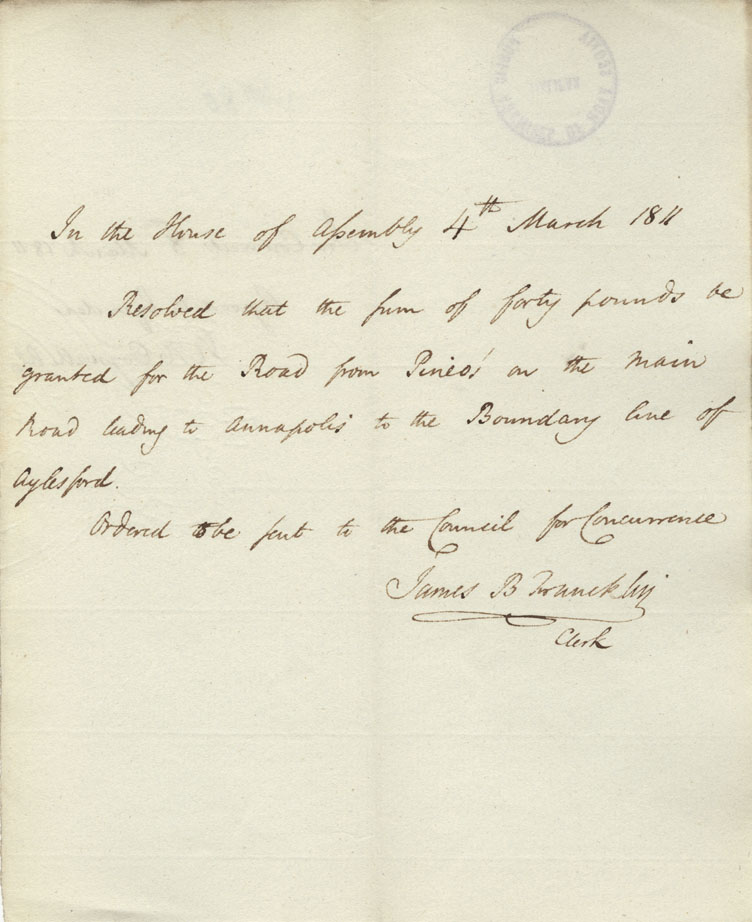 In the House of Assembly 4th March 1811
Resolved that the sum of forty pounds be
granted for the Road from Pineo's on the main
Road leading to Annapolis to the Boundary line of
Aylesford.
Ordered to be sent to the Council for Concurrence
James B Francklin
Clerk